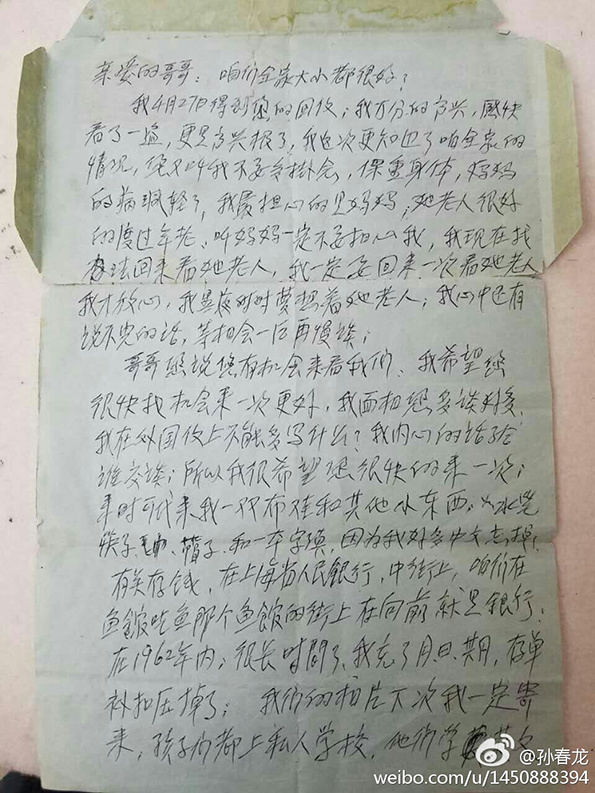 亲爱的哥哥：咱们全家大小都很好？
我4月27日得到您的回信；我万分的高兴，感快
看了一遍，更是高兴极了，我这次更知道了咱全家的
情况，您又叫我不要多挂念，保重身体，妈妈
的病减轻了，我最担心的是妈妈；她老人很好
的度过年老，叫妈妈一定不要担心我，我现在找
办法回来看她老人，我一定要回来一次看她老人
我才放心，我是夜时时梦想着她老人；我心中还有
说不完的话，等相会一后再慢谈；
哥哥您说您有机会来看我们，我希望您
很快找机会来一次更好，我面相您多谈好多
我在外国信上不能多写什么？我内心的话给
谁交谈；所以我很希望您很快的来一次；
来时可代来我一双布鞋和其他小东西，
筷子、帽子、和一本字典，因为我好多中文忘掉，
有关存钱，在上海省人民银行，中街上，咱们在
鱼馆吃鱼那个鱼馆的街上在向前就是银行，
在1962年内；很长时间了，我忘了月、日、期，存单
被扣压掉了；我们的相片下次我一定寄
来，孩子们都上私人学校，他们学
@孙春龙
weibo.com/u/1450888394